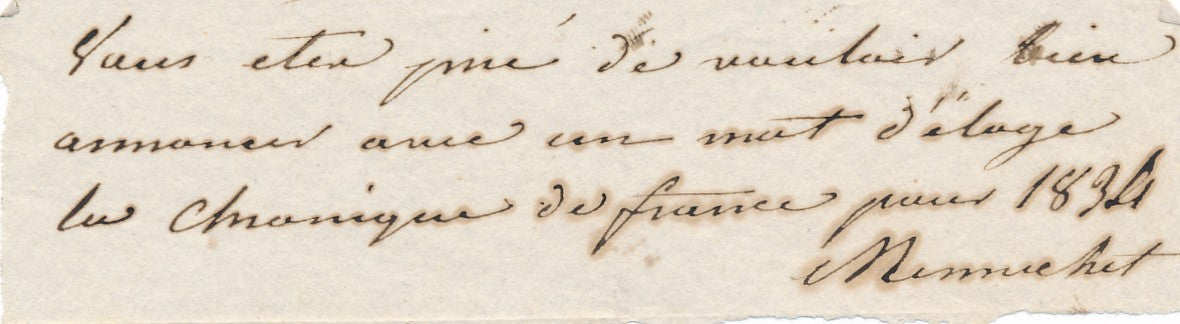 Vous etes prié de vouloir bien
annoncer avec un mot d'éloge
la Chronique de france pour 1834
Mennechet